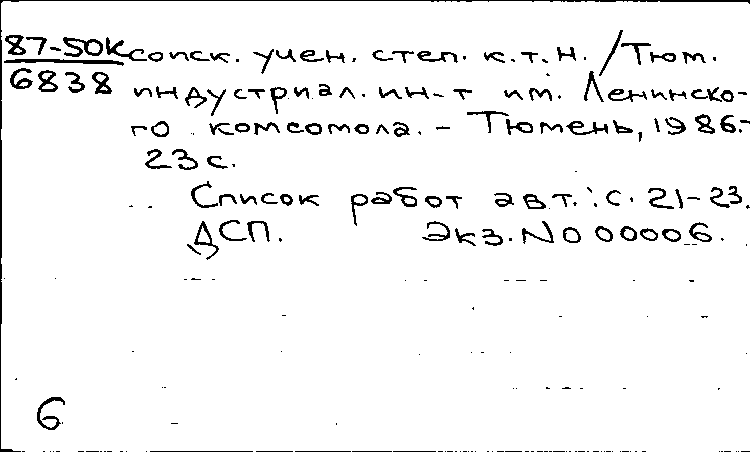 87-50К соиск. учен. степ. к.т.н. /Тюм.
6838 индустриал. ин-т им. Ленинско-
го комсомола. - Тюмень, 1986.-
23 с.
Список работ авт.: с. 21-23.
ДСП. Экз. No 00006.
6